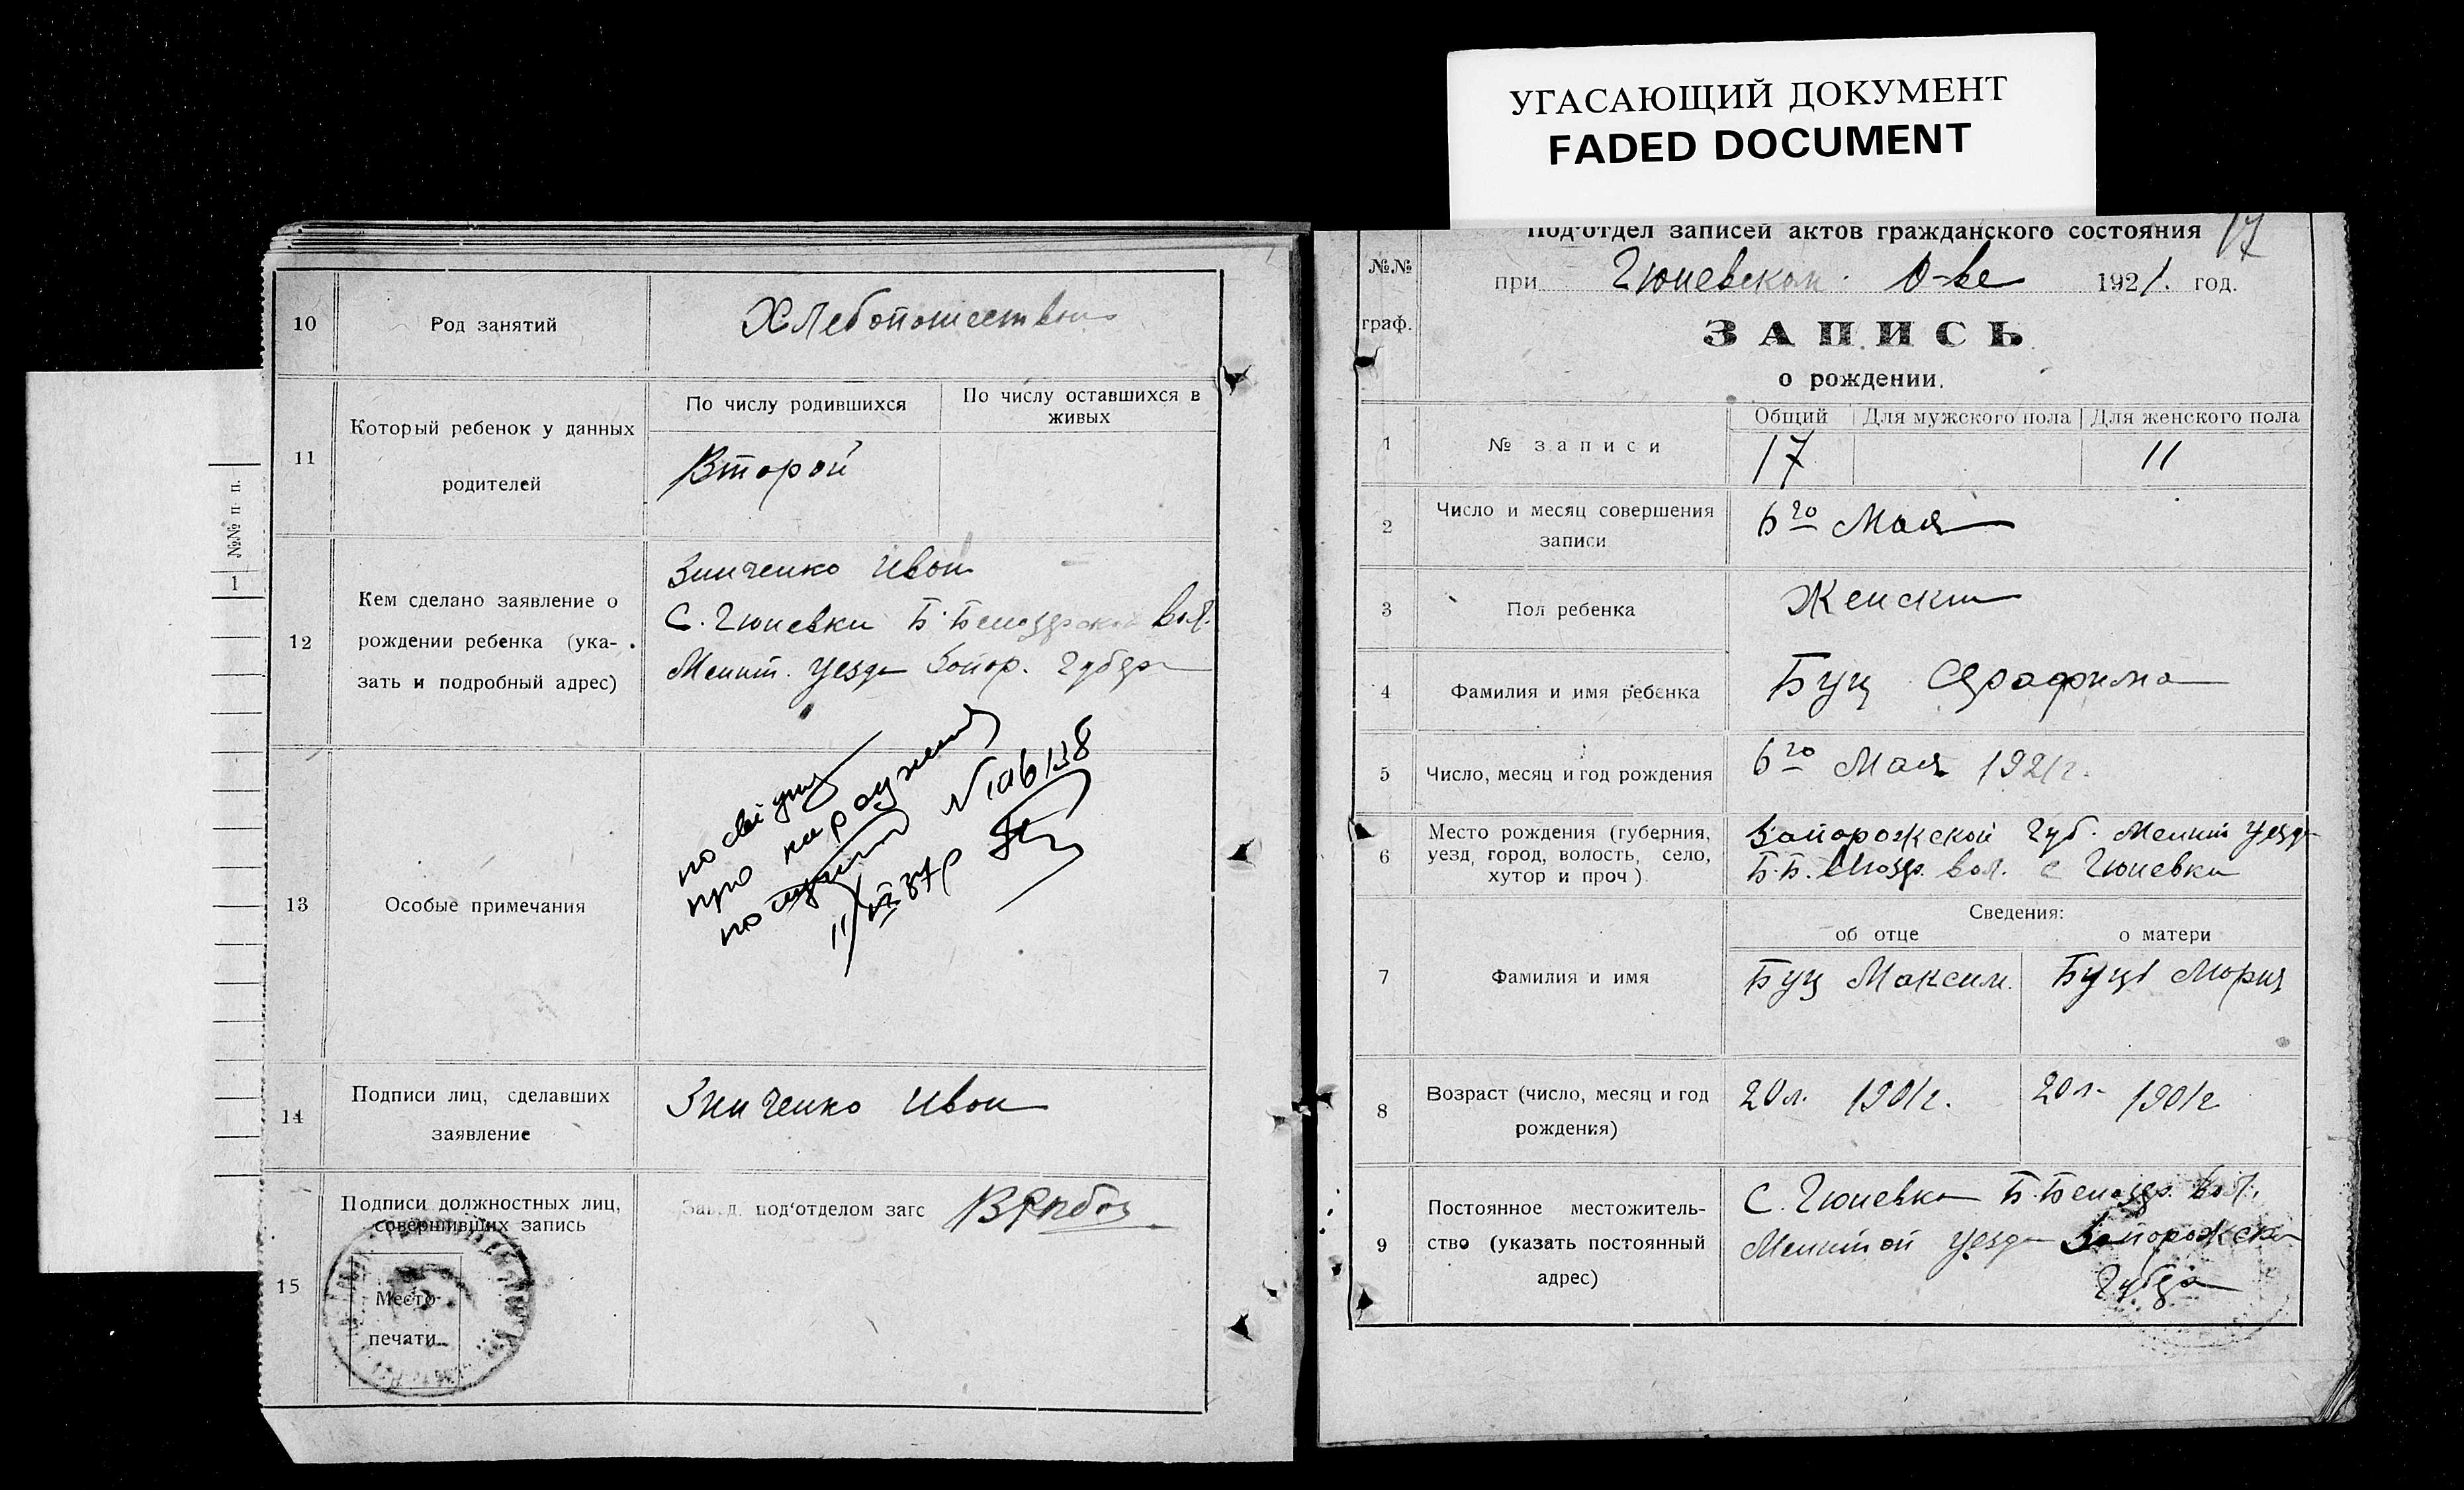 УГАСАЮЩИЙ ДОКУМЕНТ
FADED DOCUMENT
№№ п п.
1
10
Род занятий
Хлебопашеством
11
Который ребенок у данных
родителей
По числу родившихся
По числу оставшихся в
живых
Второй
12
Кем сделано заявление о
рождении ребенка (ука-
зать и подробный адрес)
Зинченко Иван
С. Гюневки Б. Белозерской Вол.
Мелит. Уезда Запор. Губер
13
Особые примечания
про народження
N 106138
14
Подписи лиц, сделавших
заявление
Зинченко Иван
15
Подписи должностных лиц,
совершивших запись
Место
печати
Завед. под'отделом загс
17
Под'отдел записей актов гражданского состояния
№№
граф.
при Гюневском О-ве 1921. год.
ЗАПИСЬ
о рождении.
1
№ записи
Общий
Для мужского пола
Для женского пола
17
11
2
Число и месяц совершения
записи
6го Мая
3
Пол ребенка
Женский
4
Фамилия и имя ребенка
Буц Серафима
5
Число, месяц и год рождения
6го Мая 1921г.
6
Место рождения (губерния,
уезд, город, волость, село,
хутор и проч).
Запорожской Губ. Мелит Уезда
Б.Б. Белозер. вол. с Гюневки
Сведения:
об отце
о матери
7
Фамилия и имя
Буц Максим.
Буц Мария
8
Возраст (число, месяц и год
рождения)
20л. 1901г.
20л. 1901г
9
Постоянное местожитель-
ство (указать постоянный
адрес)
С. Гюневка Б. Белозер. Вол.
Мелитоп Уезда Запорожско
Губер